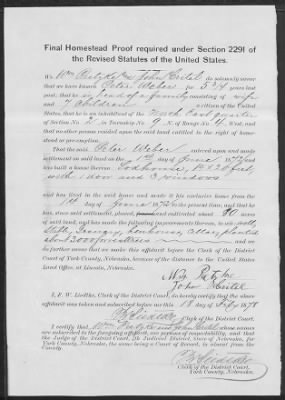 Final Homestead Proof required under Section 2291 of
the Revised Statutes of the United States.
We, Wm and John Ertel do solemnly swear
that we have known Peter Weber for 5 3/4 years last
past; that he is head of a family consisting of wife
and 7 children a citizen of the United
States, that he is an inhabitant of the North East quarter
of Section No. 2 in Township No. 9 N. of Range No. 4 West, and
that no other person resided upon the said land entitled to the right of home-
stead or pre-emption.
That the said Peter Weber entered upon and made
settlement on said land on the 1st day of June 1872 and
has built a house thereon Sodhouse, 18 x 20 feet,
with 1 door and 3 windows
and has lived in the said house and made it his exclusive home from the
1st day of June 1872 to the present time, and that he
has, since said settlement, plowed, and cultivated about 80
acres of said land, and has made the following improvements thereon, to wit:
Stable, Granary, henhouse, Cellar, planted
about 3000 forest trees and we
do further swear that we make this affidavit before the Clerk of the District
Court of York County, Nebraska, in consequence of distance to the United States
Land Office, at Lincoln, Nebraska.
John Ertel
I, F. W. Liedtke, Clerk of the District Court, do hereby certify that the above
affidavit was taken and subscribed before me this 18 day of 1878
Clerk of the District Court.
I certify that John Ertel whose names
are subscribed to the foregoing affidavit, are persons of respectability, and that
the Judge of the District Court, Judicial District, State of Nebraska, for
York County, Nebraska, the same being a Court of Record, is absent from the
County.
Clerk of the District Court,
York County, Nebraska.